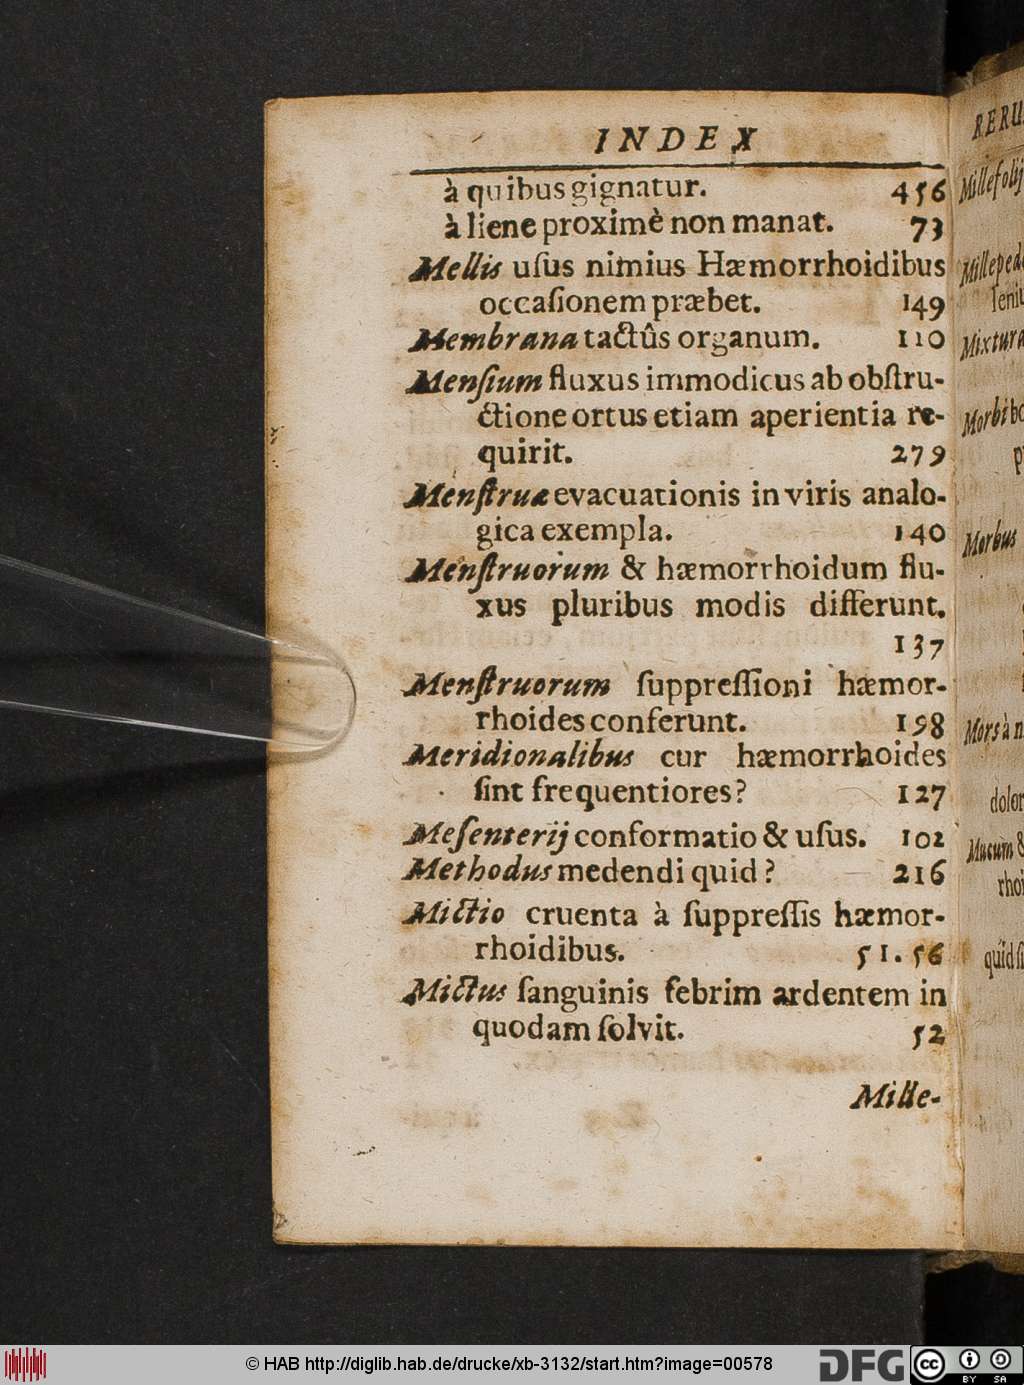 INDEX
à quibus gignatur. 456
à liene proximè non manat. 73
Mellis uſus nimius Hæmorrhoidibus
occaſionem præbet. 149
Membrana tactûs organum. 110
Menſium fluxus immodicus ab obſtru-
ctione ortus etiam aperientia re-
quirit. 279
Menſtruæ evacuationis in viris analo-
gica exempla. 140
Menſtruorum & hæmorrhoidum flu-
xus pluribus modis differunt.
137
Menſtruorum ſuppreſſioni hæmor-
rhoides conferunt. 198
Meridionalibus cur hæmorrhoides
ſint frequentiores? 127
Meſenterij conformatio & uſus. 102
Methodus medendi quid? 216
Mictio cruenta à ſuppreſſis hæmor-
rhoidibus. 51. 56
Mictus ſanguinis febrim ardentem in
quodam ſolvit. 52
Mille-
RERU
Millefolij
Milleped
lenit
Mixtura
Morbi
Morbus
Mors à n
dolor
Mucum &
rhoi
quid ſi
© HAB http://diglib.hab.de/drucke/xb-3132/start.htm?image=00578
DFG
cc BY SA